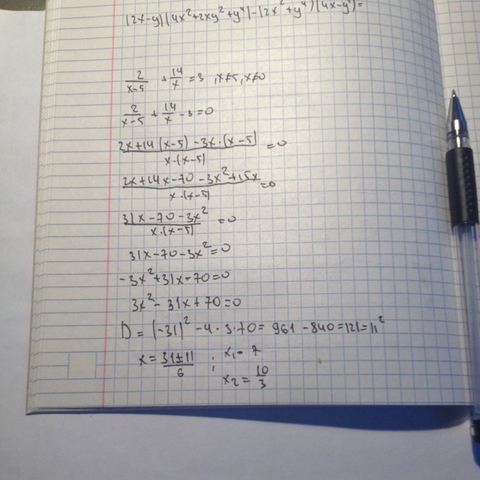 (2x-y)(4x²+2xy²+y⁴)-(2x²+y⁴)(4x-y²)=
2/(x-5) + 14/x = 3, x≠5, x≠0
2/(x-5) + 14/x - 3 = 0
(2x+14(x-5)-3x·(x-5))/(x·(x-5)) = 0
(2x+14x-70-3x²+15x)/(x·(x-5)) = 0
(31x-70-3x²)/(x·(x-5)) = 0
31x-70-3x²=0
-3x²+31x-70=0
3x²-31x+70=0
D=(-31)²-4·3·70=961-840=121=11²
x=(31±11)/6 ; x₁=7
x₂=10/3